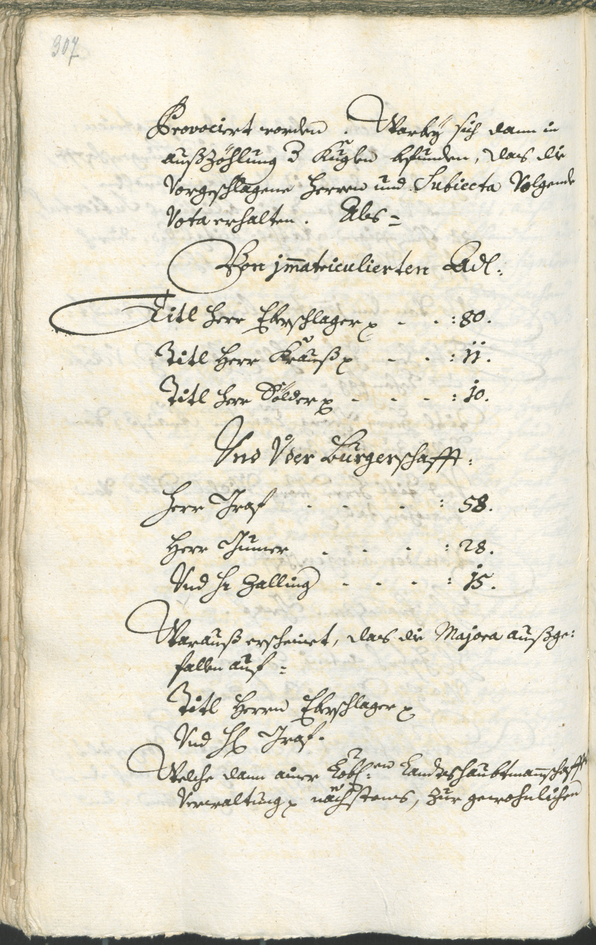 307
Provociert worden. Warbey sich dann in
außzöhlung d Kuglen befunden, das die
Vorgeschlagene Herren und Subiecta Volgende
Vota erhalten. Als =
Von jmatriculierten Adl:
Titl Herr Eberschlager - - : 80.
Titl Herr Kreuß - - : 11.
Titl Herr Sölder - - - : 10.
Und Von Burgerschafft:
Herr Graf - - - : 58.
Herr Jnner - - - : 28.
Und H: Zalling - - - : 15.
Warauß erscheinet, das die Majora außge:
fallen auf =
Titl Herrn Eberschlager
Und H: Graf.
Welche dann ainer Lobl:en Landtshaubtmannschafft
Verwaltung nächstens, zur gewohnlichen